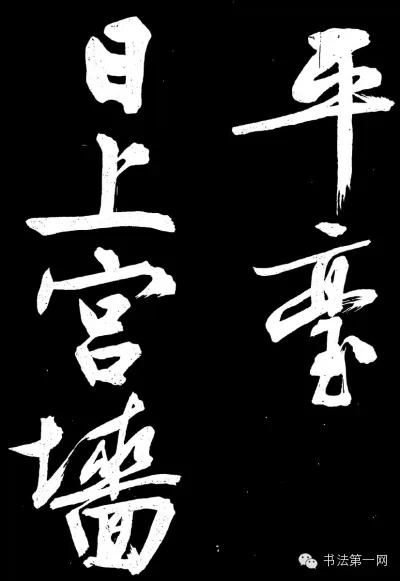 平臺
日上宫墻
书法第一网